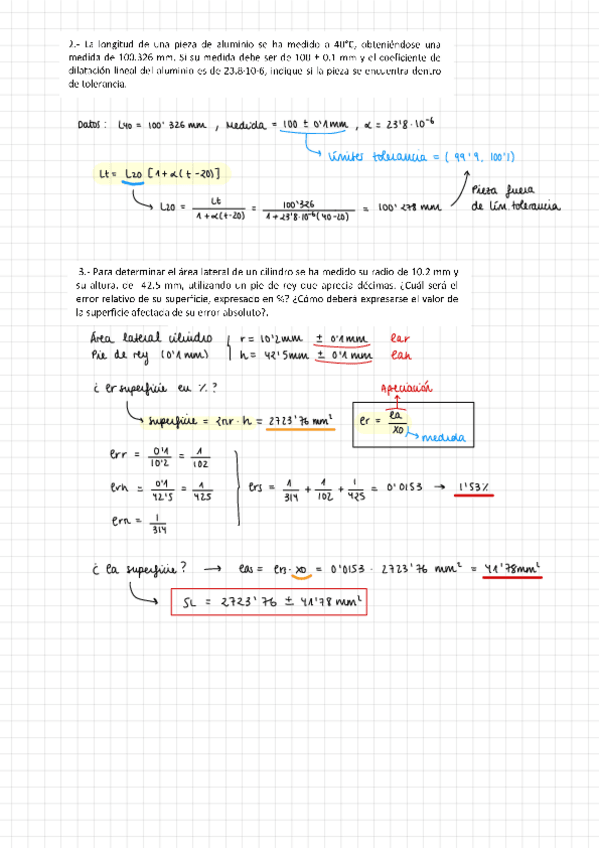 2.- La longitud de una pieza de aluminio se ha medido a 40°C, obteniéndose una
medida de 100.326 mm. Si su medida debe ser de 100 ± 0.1 mm y el coeficiente de
dilatación lineal del aluminio es de 23.8·10-6, indique si la pieza se encuentra dentro
de tolerancia.
Datos: L40 = 100'326 mm, Medida = 100 ± 0'1mm, α = 23'8·10⁻⁶
Límites tolerancia = (99'9, 100'1)
Lt = L20 [1+α(t-20)]
Pieza fuera
de Lím. tolerancia
L20 = Lt / 1+α(t-20) = 100'326 / 1+23'8·10⁻⁶(40-20) = 100'278 mm
3.- Para determinar el área lateral de un cilindro se ha medido su radio de 10.2 mm y
su altura, de 42.5 mm, utilizando un pie de rey que aprecia décimas. ¿Cuál será el
error relativo de su superficie, expresado en %? ¿Cómo deberá expresarse el valor de
la superficie afectada de su error absoluto?.
Área lateral cilindro r = 10'2mm ± 0'1mm ear
Pie de rey (0'1mm) h = 42'5mm ± 0'1 mm eah
¿ er superficie en %?
Apreciación
superficie = 2πr·h = 2723'76 mm²
er = ea / xo
medida
err = 0'1/10'2 = 1/102
erh = 0'1/42'5 = 1/425
ers = 1/314 + 1/102 + 1/425 = 0'0153 → 1'53%
erπ = 1/314
¿ ea superficie? → eas = ers · xo = 0'0153 · 2723'76 mm² = 41'78mm²
SL = 2723'76 ± 41'78 mm²